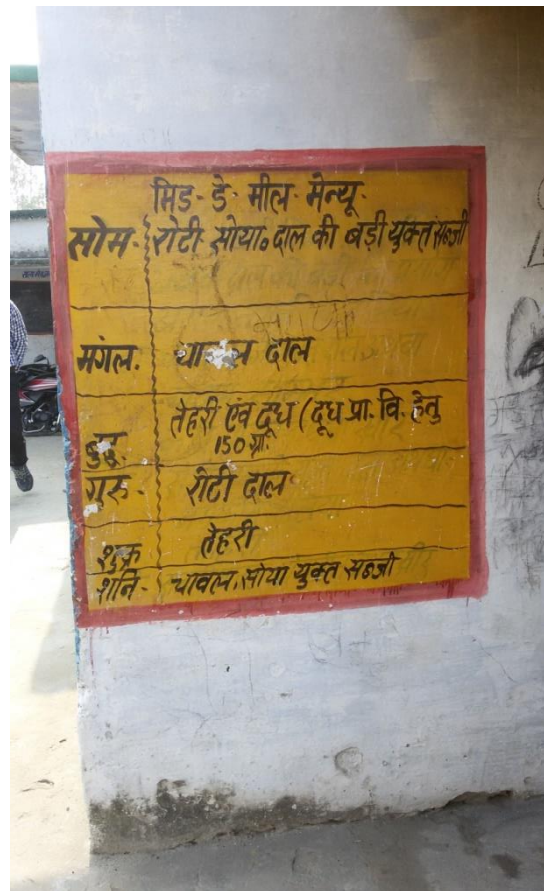 मिड-डे-मील-मेन्यू-
सोम- रोटी सोया॰ दाल की बड़ी युक्त सब्जी
मंगल. चावल दाल
बुद्ध. तेहरी एवं दूध (दूध प्रा. वि. हेतु
150 ग्रा.
गुरु- रोटी दाल
शुक्र तेहरी
शनि- चावल, सोया युक्त सब्जी